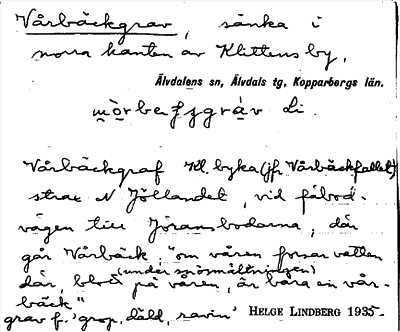 Vårbäckgrav, sänka i
norra kanten av Klittens by,
Älvdalens sn, Älvdals tg, Kopparbergs län.
Li.
Vårbäckgraf Kl. byka (jfr Vårbäckfallet)
strax N Jöllandet, vid fäbod-
vägen till Jöransbodarna, där
går Vårbäck, "om våren forsar vatten
(under snösmältningen)
där, blott på våren, är bara en vår-
bäck"
grav f. 'grop, däld, ravin' HELGE LINDBERG 1935